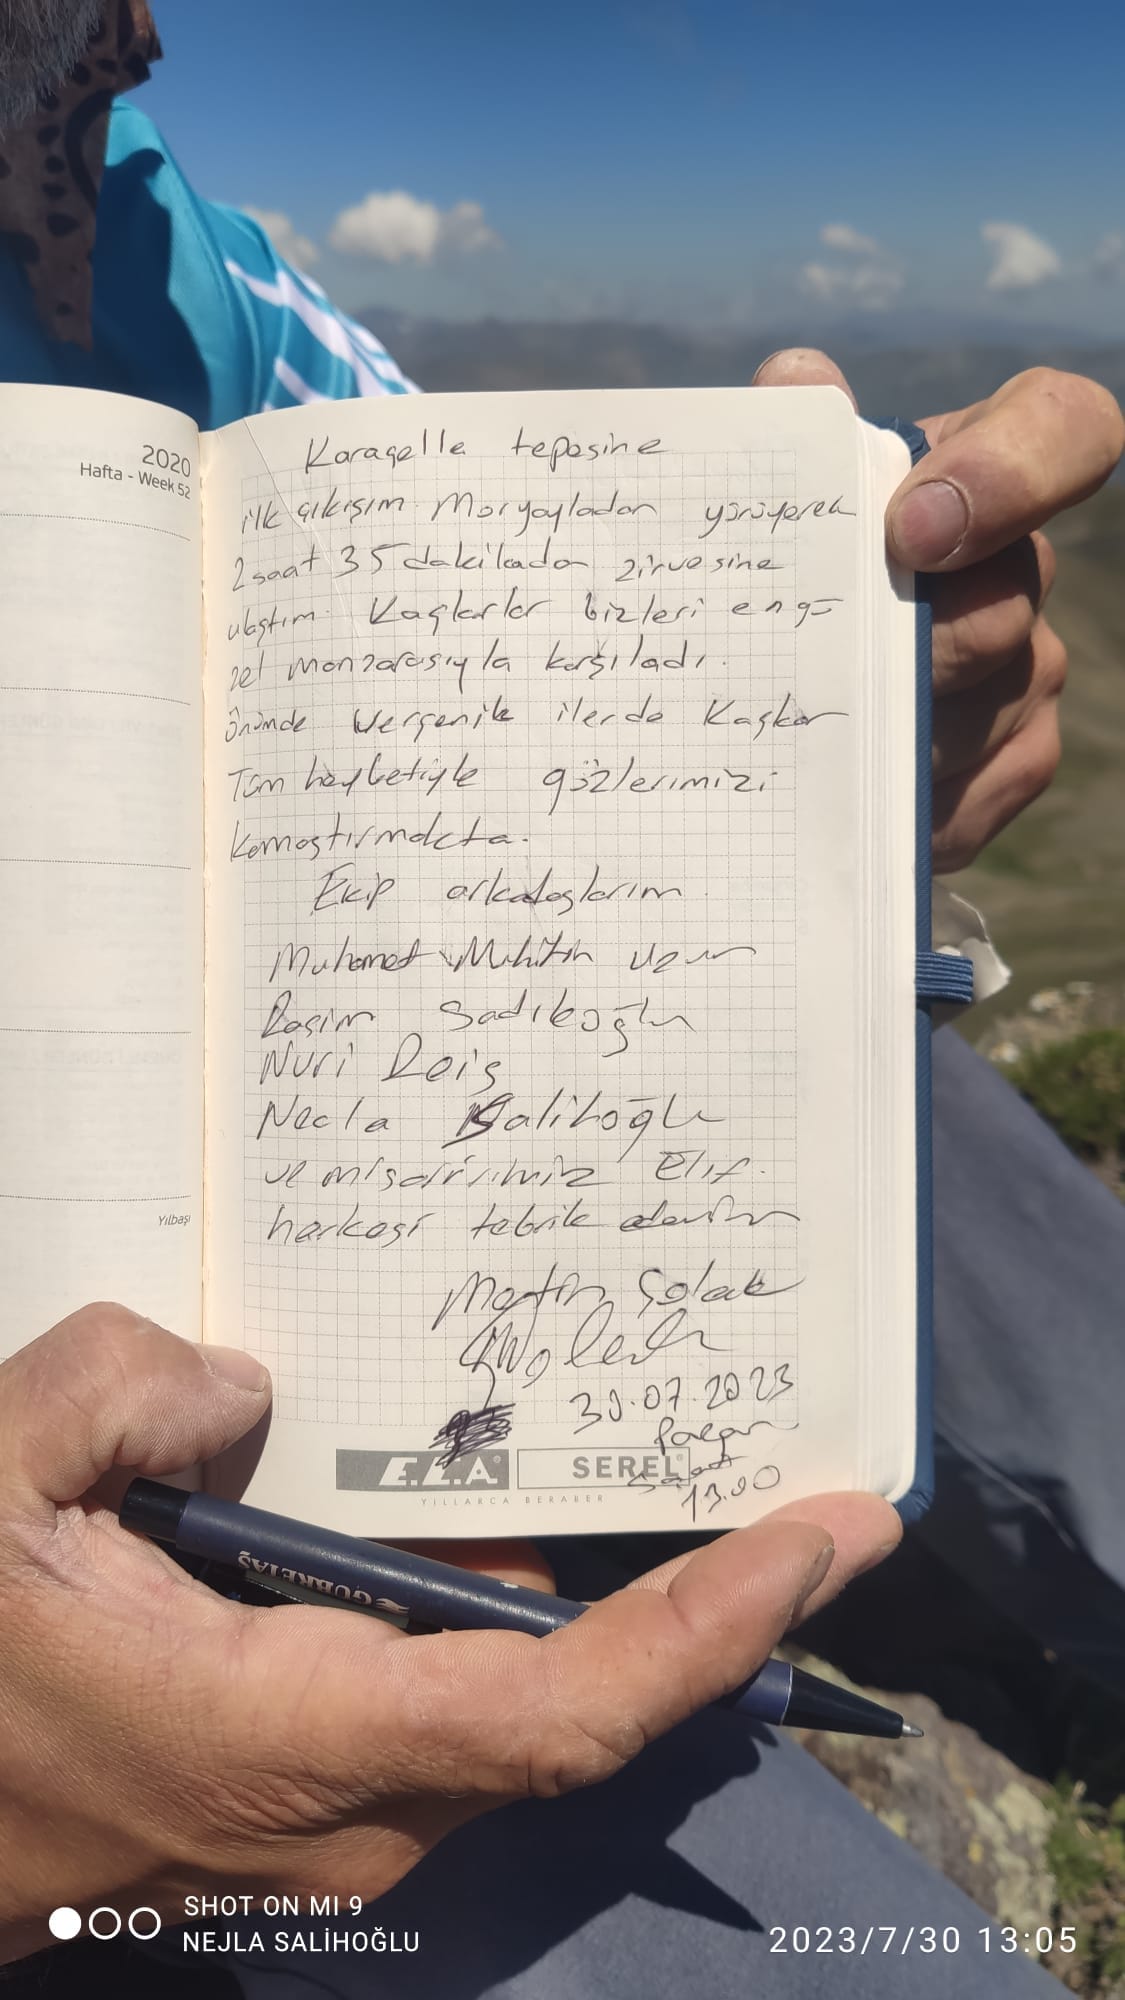 2020
Hafta - Week 52
Yılbaşı
Karagelle tepesine
ilk çıkışım Moryayladan yürüyerek
2 saat 35 dakikadan zirvesine
ulaştım. Kaçkarlar bizleri en gü
zel manzarasıyla karşıladı.
önümde Verşenik ilerde Kaçkar
Tüm heybetiyle gözlerimizi
Kamaştırmakta.
Ekip arkadaşlarım.
Muhamet Muhitin Uzun
Rasim Sadıkoğlu
Nuri Reis
Necla Salihoğlu
ve misafirimiz Elif.
herkesi tebrik ederim
Metin Çolak
30.07.2023
Pazar
Saat
13.00
E.C.A
SEREL
YILLARCA BERABER
GÜBRETAŞ
SHOT ON MI 9
NEJLA SALİHOĞLU
2023/7/30 13:05